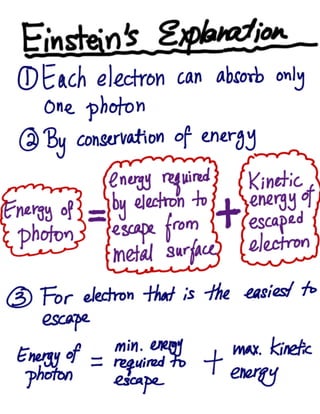 Einstein's Explanation
① Each electron can absorb only
one photon
② By conservation of energy
Energy of
photon
=
energy required
by electron to
escape from
metal surface
+
Kinetic
energy of
escaped
electron
③ For electron that is the easiest to
escape
Energy of
photon
=
min. energy
required to
escape
+
max. kinetic
energy